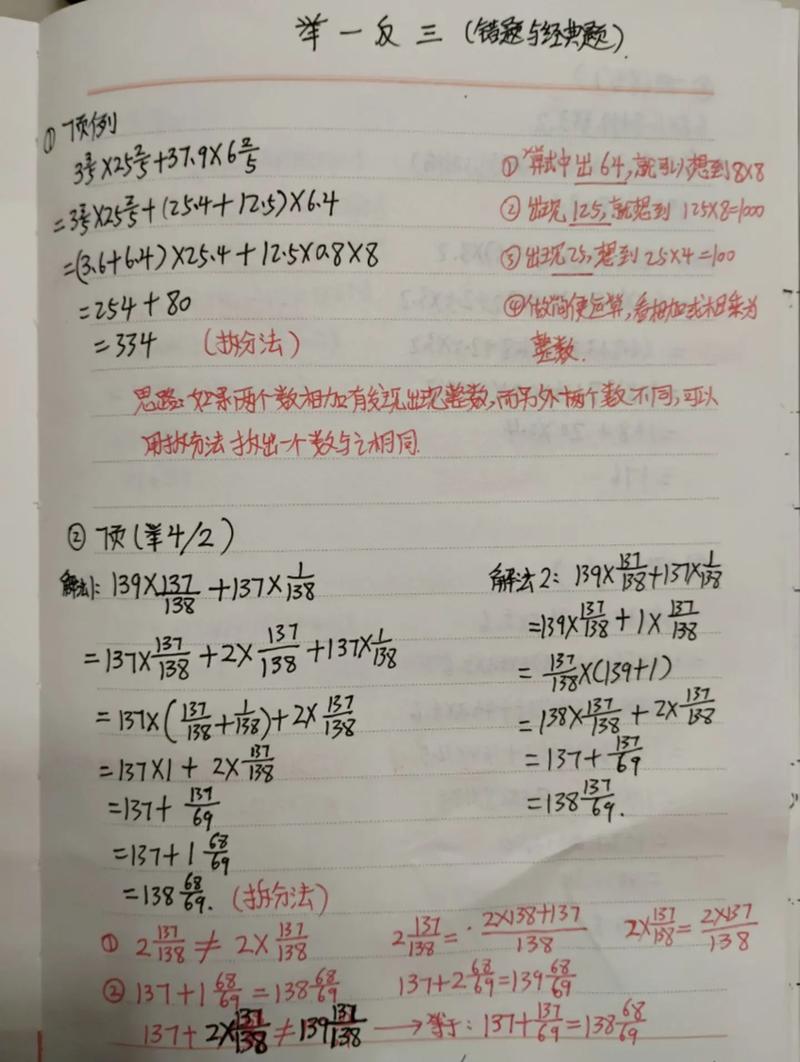 举一反三(错题与经典题)
① 下页例
3 3/5 × 25 2/5 + 37.9 × 6 2/5
= 3 3/5 × 25 2/5 + (25.4 + 12.5) × 6.4
= (3.6 + 6.4) × 25.4 + 12.5 × 0.8 × 8
= 254 + 80
= 334 (拆分法)
① 算式中出64,就可以想到8×8
② 出现125,就想到 125×8=1000
③ 出现25,想到 25×4=100
④ 做简便运算,看相加或相乘为
整数.
思路:如果两个数相加有发现出现整数,而另外两个数不同,可以
用拆分法拆出一个数与之相同.
② 下页(举4/2)
解法1: 139 × 137/138 + 137 × 1/138
= 137 × 137/138 + 2 × 137/138 + 137 × 1/138
= 137 × (137/138 + 1/138) + 2 × 137/138
= 137 × 1 + 2 × 137/138
= 137 + 137/69
= 137 + 1 68/69
= 138 68/69. (拆分法)
解法2: 139 × 137/138 + 137 × 1/138
= 139 × 137/138 + 1 × 137/138
= 137/138 × (139 + 1)
= 138 × 137/138 + 2 × 137/138
= 137 + 137/69
= 138 137/69.
① 2 137/138 ≠ 2 × 137/138 2 137/138 = (2×138+137)/138 2 × 137/138 = (2×137)/138
② 137 + 1 68/69 = 138 68/69 137 + 2 68/69 = 139 68/69
137 + 2 × 137/138 ≠ 139 137/138 → 等于: 137 + 137/69 = 138 68/69